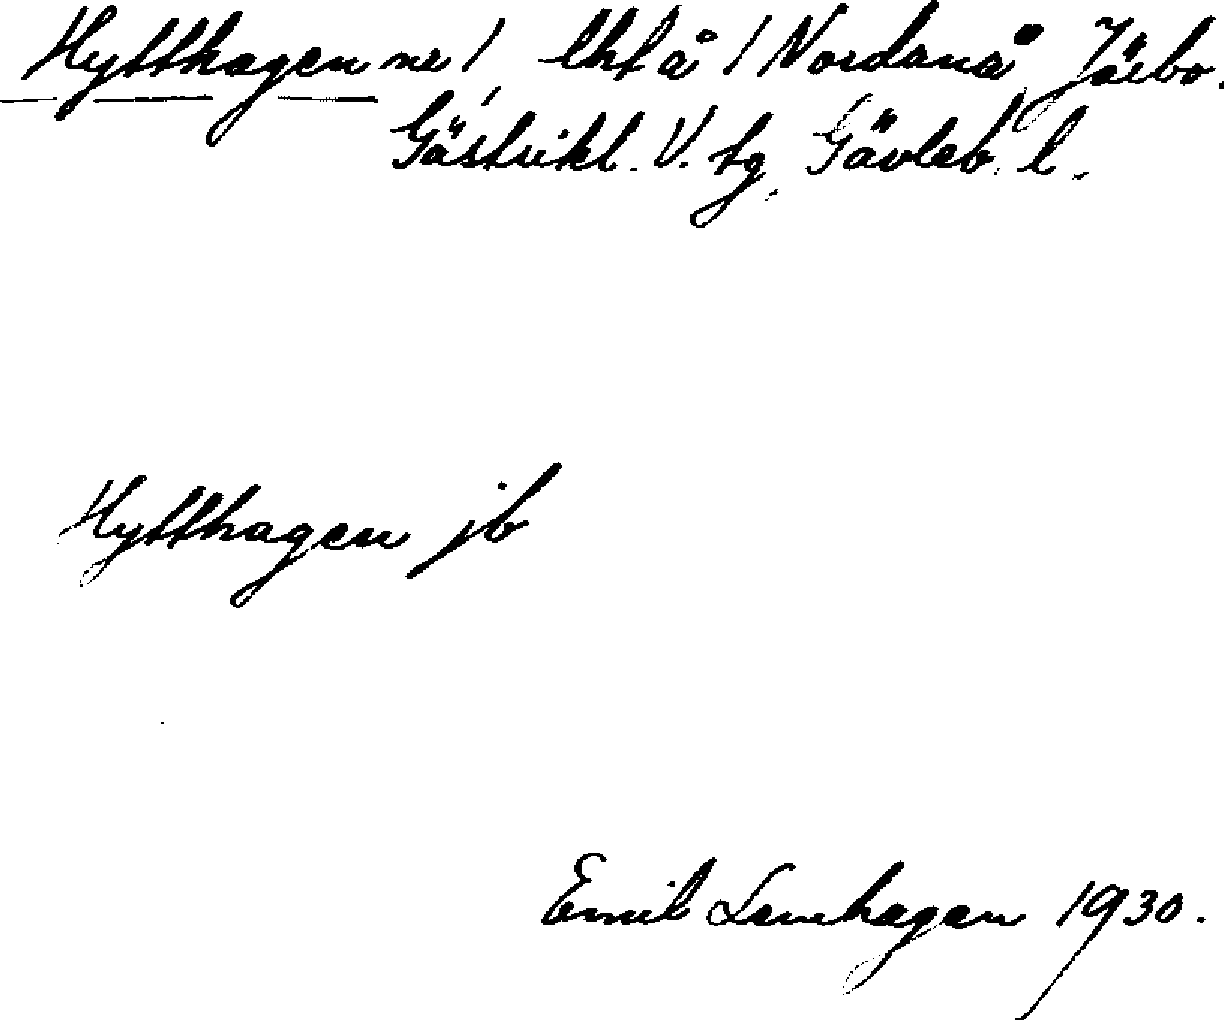 Hytthagen ne/, lht å / Nordanå Järbo.
Gästrikl. V. tg. Gävleb. l.
Hytthagen jb
Emil Lenhagen 1930.